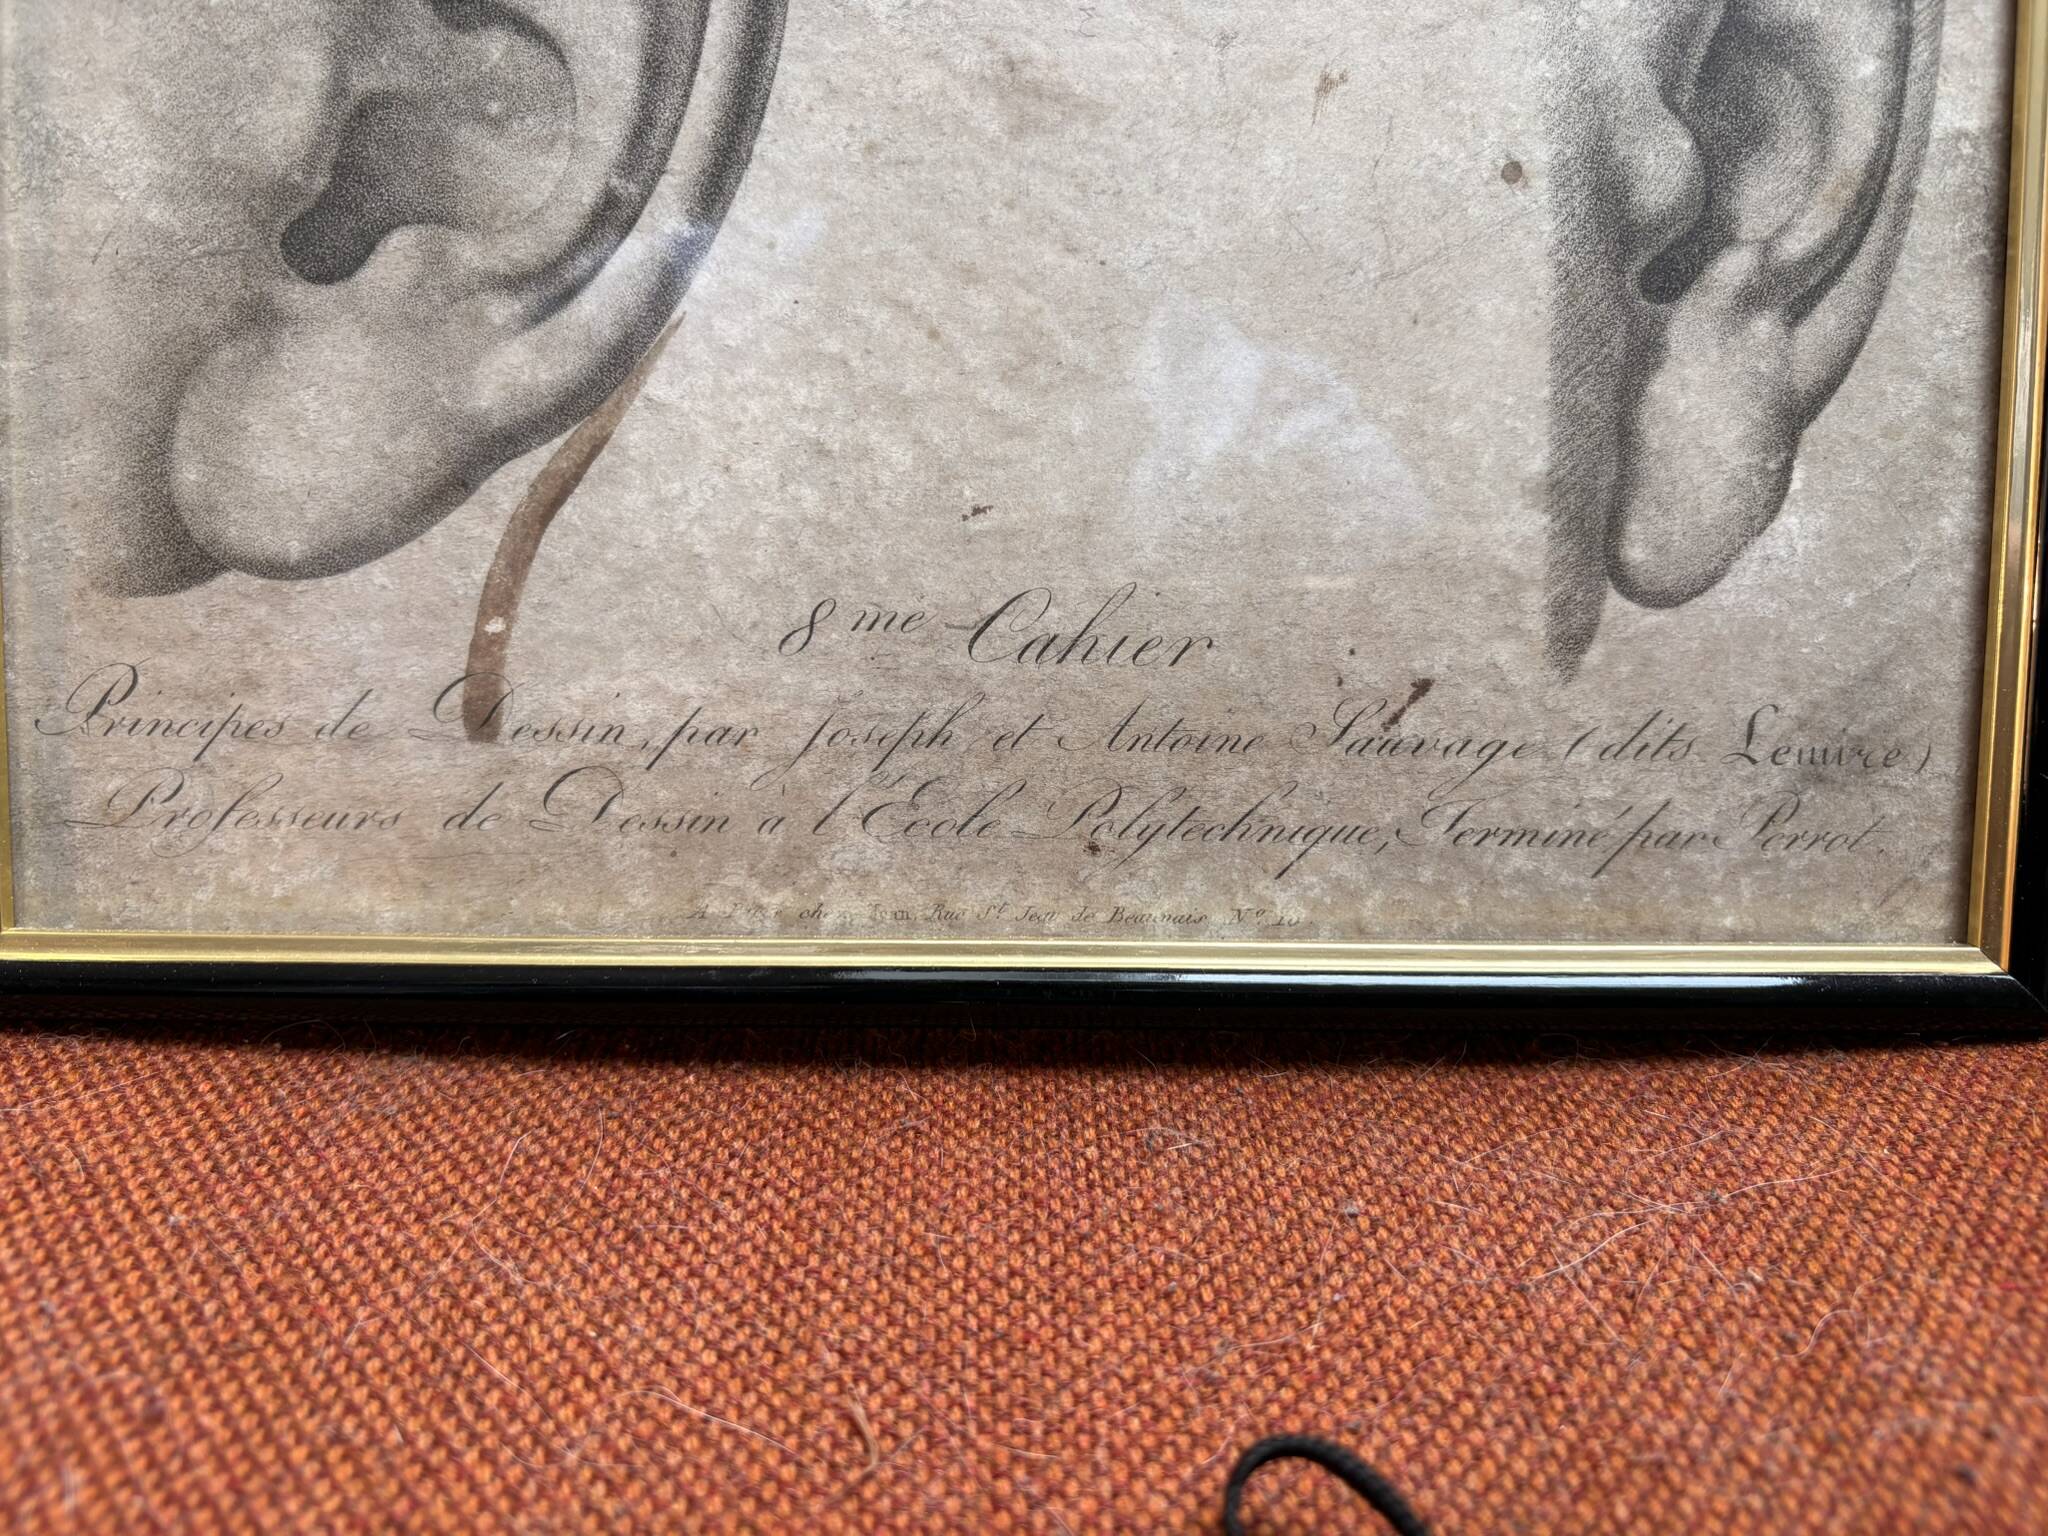 8me Cahier
Principes de Dessin, par Joseph et Antoine Sauvage (dits Lemire)
Professeurs de Dessin à l'Ecole Polytechnique, Terminé par Perrot.
A Paris chez Jean, Rue St. Jean de Beauvais No. 10